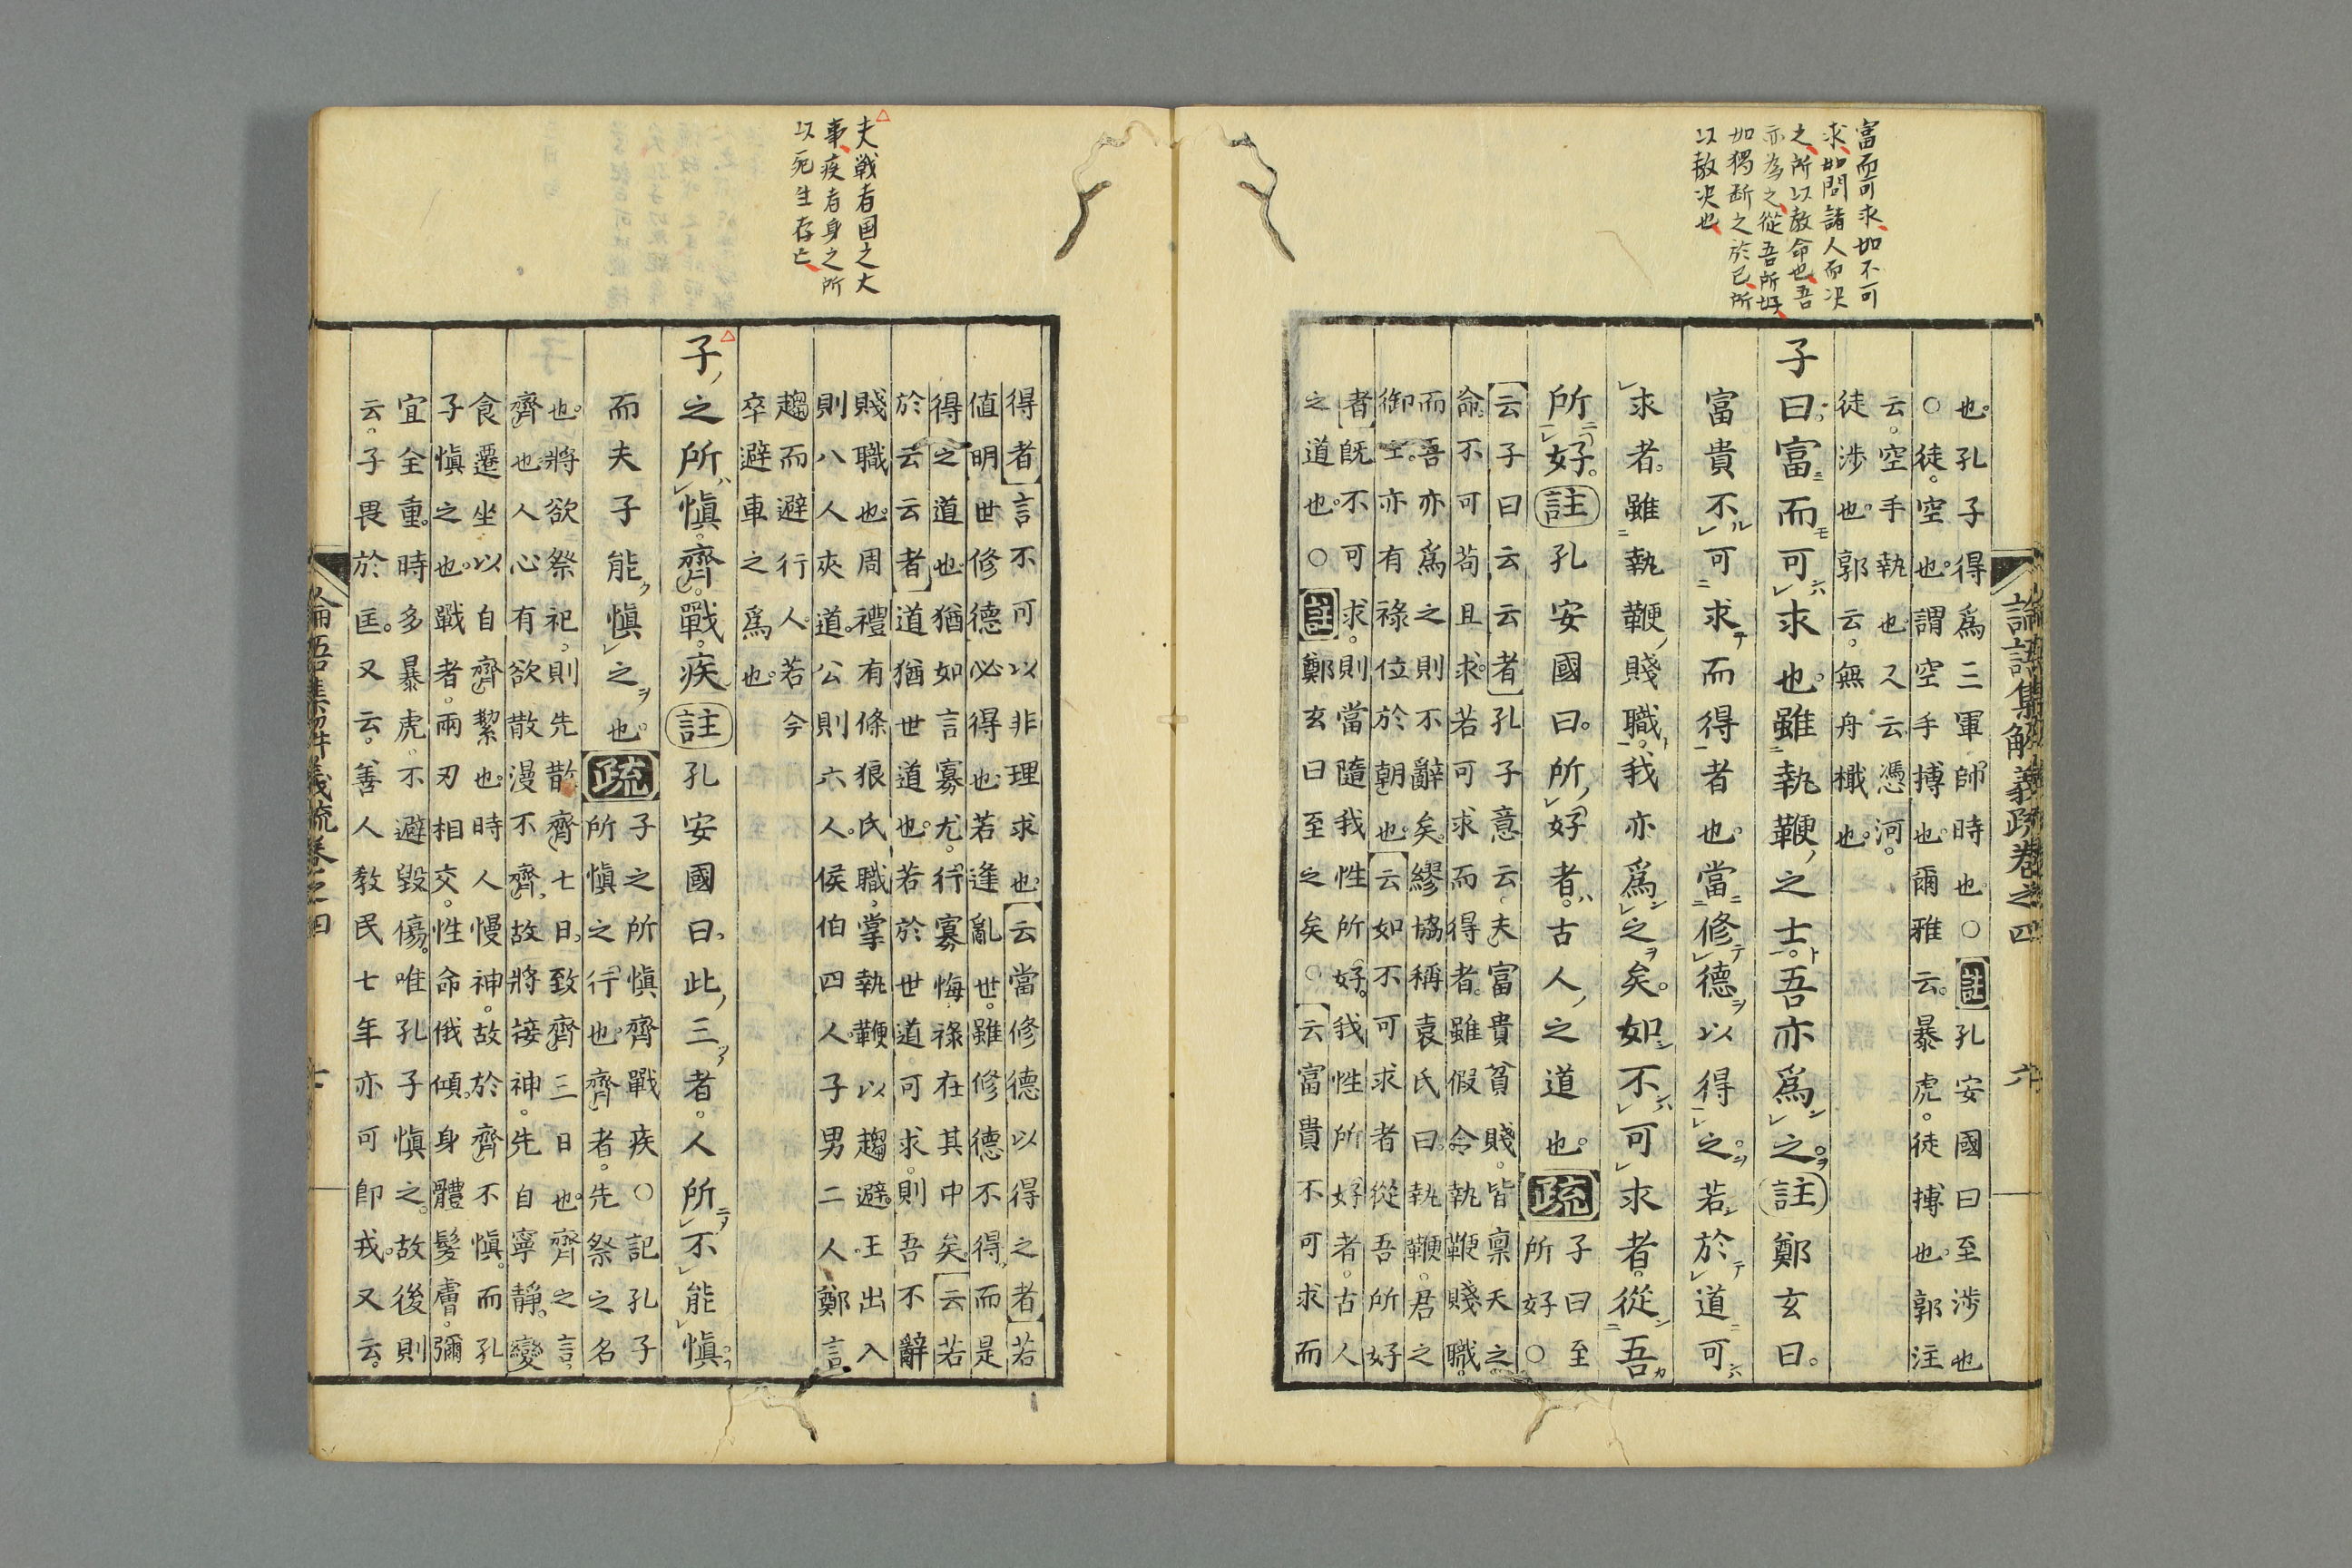 富而可求如不可
求如問諸人而决
之所以教命也吾
亦為之從吾所好
如獨斷之於己所
以教决也
論語集解義疏卷之四
六
也。孔子得爲三軍帥時也○註孔安國曰至涉也
○徒。空也。謂空手搏也。爾雅云。暴虎。徒搏也。郭注
云。空手執也。又云。憑河。
徒涉也。郭云。無舟檝也。
子曰。富而可求也。雖執鞭之士。吾亦爲之。註鄭玄曰。
富貴不可求而得者也。當修德以得之。若於道可
求者。雖執鞭賤職。我亦爲之矣。如不可求者。從吾
所好。註孔安國曰。所好者。古人之道也。疏
子曰至
所好○
云子曰云云者孔子意云。夫富貴貧賤。皆禀天之
命。不可苟且求。若可求而得者。雖假令執鞭賤職。
而吾亦爲之則不辭矣。繆協稱袁氏曰。執鞭。君之
御士。亦有祿位於朝也。云如不可求者從吾所好
者既不可求。則當隨我性所好。我性所好者。古人
之道也。○註鄭玄曰至之矣○云富貴不可求而
夫戦者国之大
事疾者身之所
以死生存亡
得者言不可以非理求也。云當修德以得之者若
值明世修德必得也若逢亂世。雖修德不得。而是
得之道也。猶如言寡尤。行寡悔祿在其中矣。云若
於云云者道猶世道也。若於世道可求。則吾不辭
賤職也。周禮有條狼氏職。掌執鞭以趨避。王出入
則八人夾道。公則六人。侯伯四人。子男二人。鄭言
趨而避行人。若今
卒避車之爲也。
子之所慎。齊。戰。疾註孔安國曰。此三者。人所不能慎。
而夫子能慎之也。疏
子之所慎齊戰疾○記孔子
所慎之行也。齊者。先祭之名
也。將欲祭祀。則先散齊七日。致齊三日也。齊之言
齊也人心有欲散漫不齊。故將接神。先自寧靜。變
食遷坐以自齊絜也。時人慢神。故於齊不慎。而孔
子慎之也。戰者。兩刃相交。性命俄傾。身體髮膚。彌
宜全重。時多暴虎。不避毀傷。唯孔子慎之。故後則
云。子畏於匡。又云。善人教民七年亦可卽戎。又云。